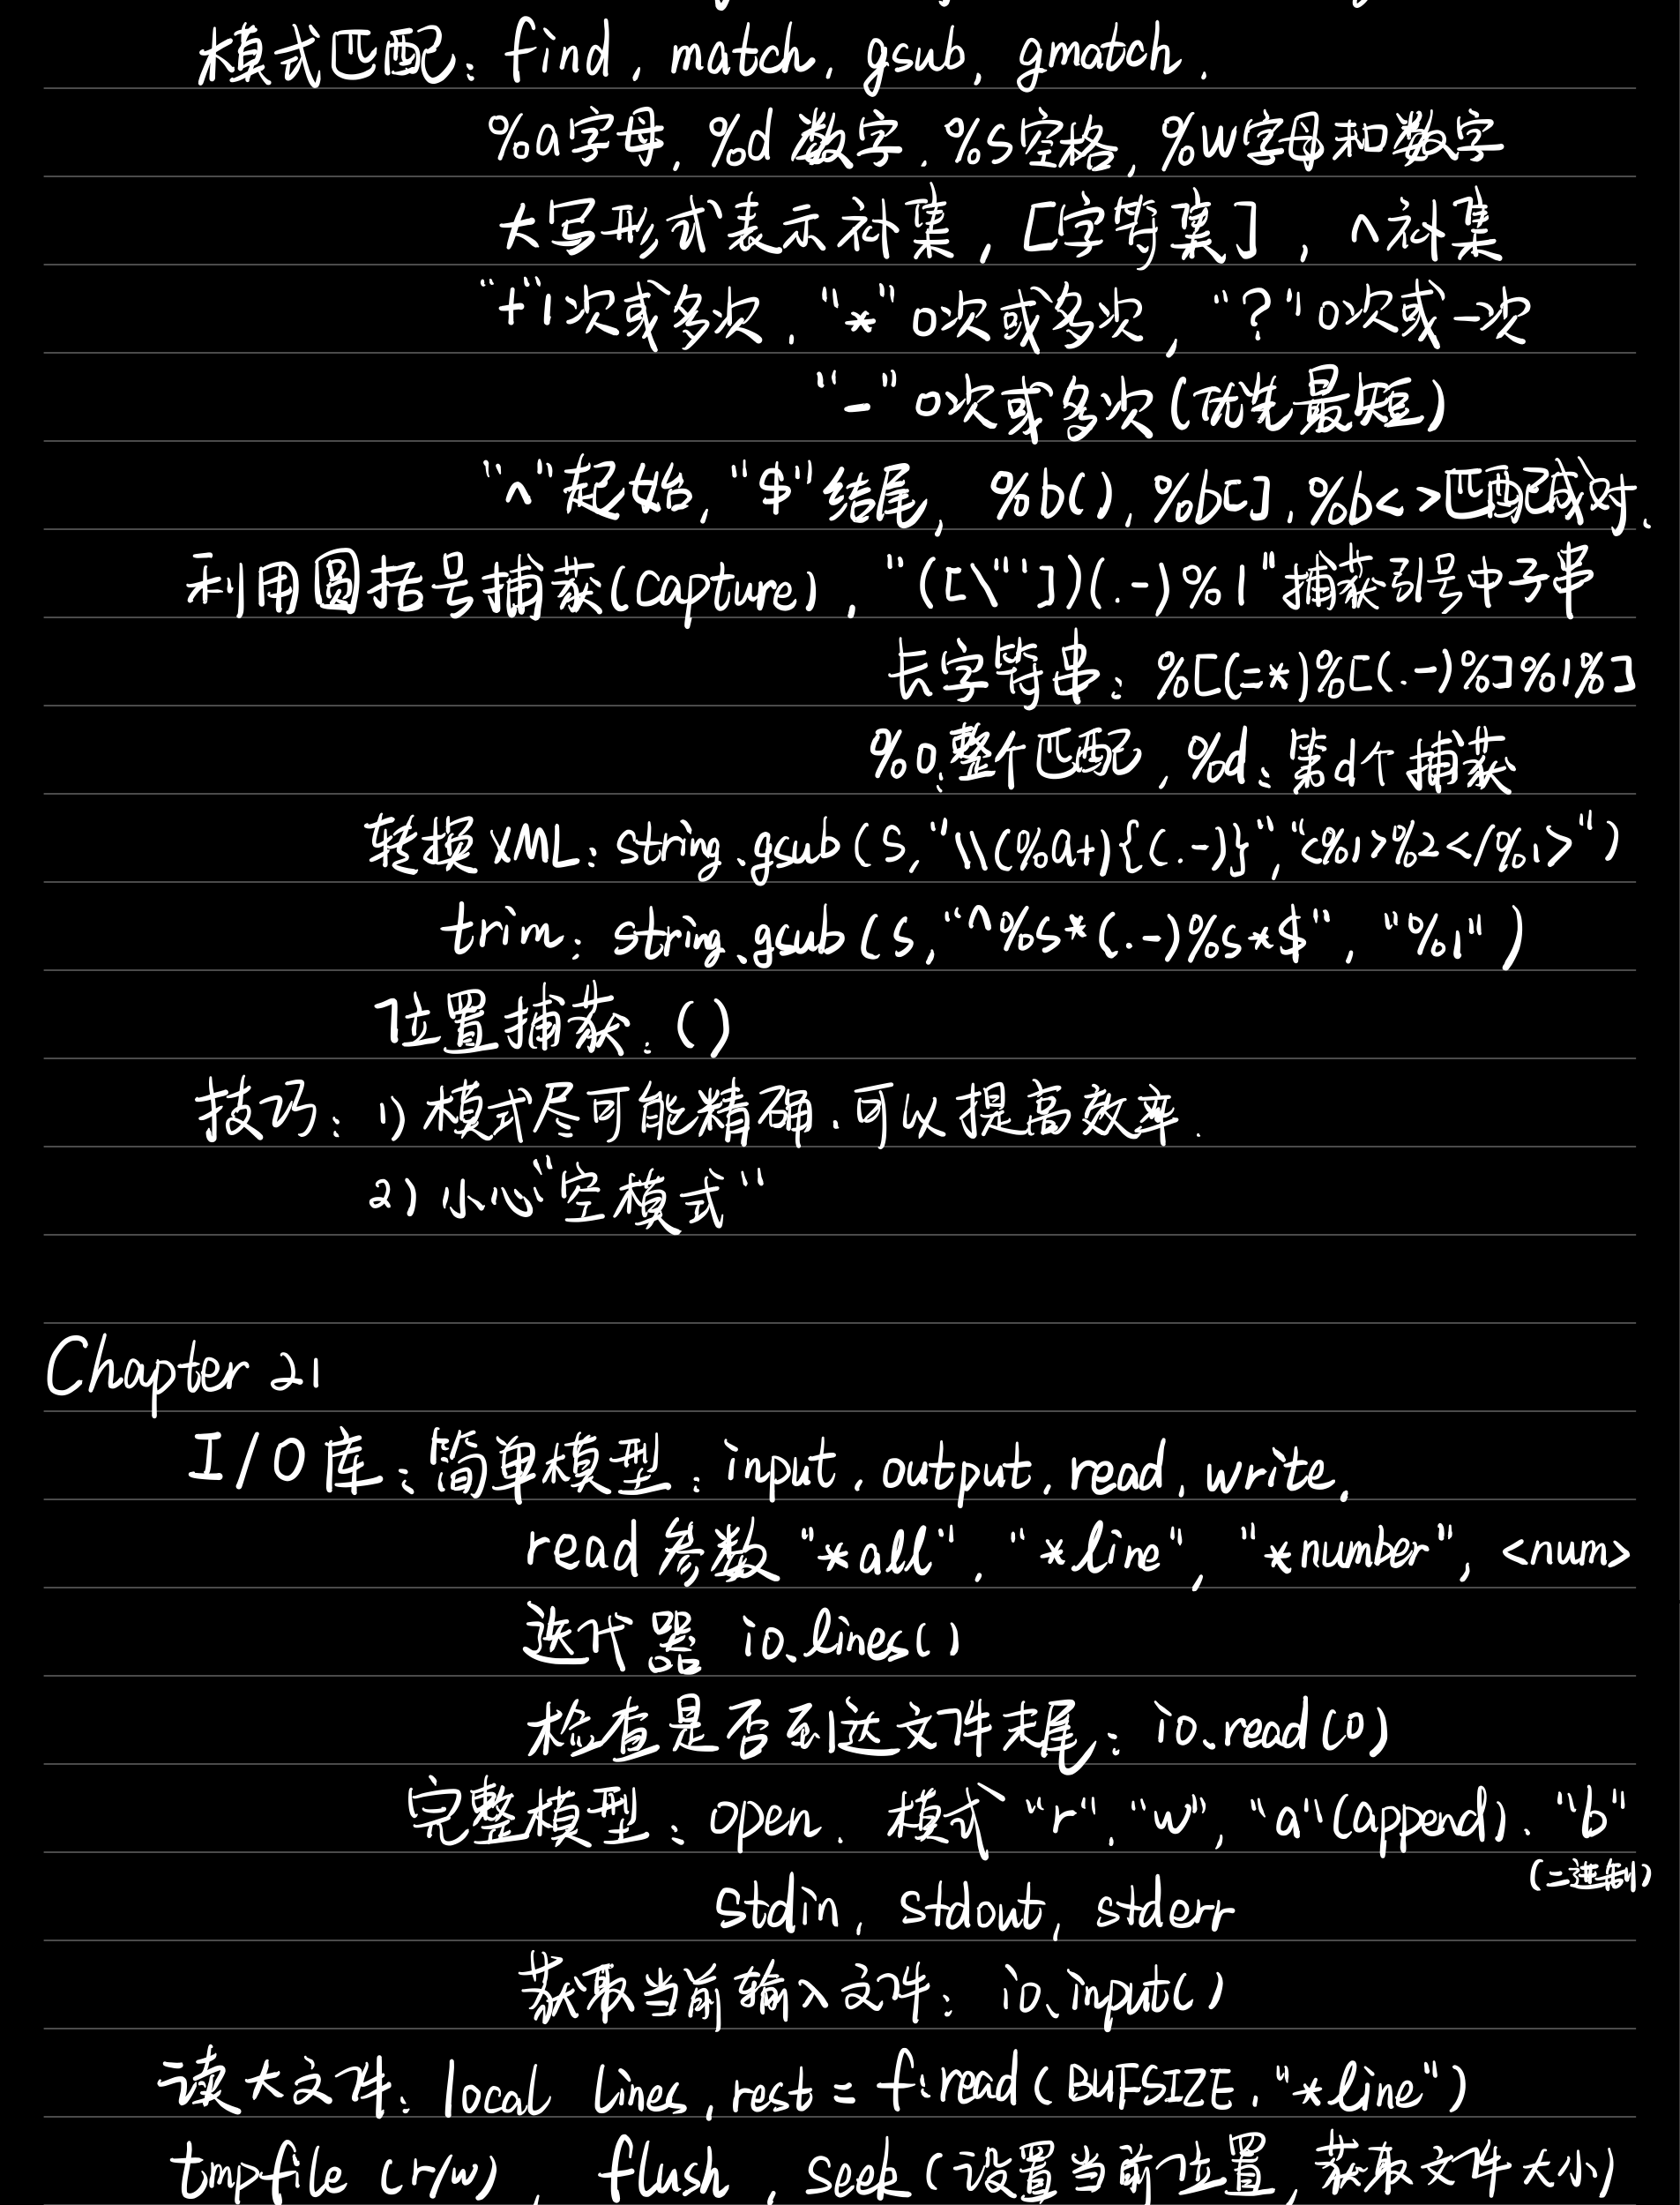 模式匹配: find, match, gsub, gmatch.
%a字母, %d数字, %s空格, %w字母和数字
大写形式表示补集, [字符集], ^补集
"+"1次或多次, "*"0次或多次, "?"0次或一次
"-"0次或多次(优先最短)
"^"起始, "$"结尾, %b(), %b[], %b<>匹配成对.
利用圆括号捕获(capture), "([\"'])(.-)%1"捕获引号中子串
长字符串: %[(=*)%[(.-)%]%1%]
%0:整个匹配, %d:第d个捕获
转换XML: string.gsub(s,"\\(%a+){(.-)}","<%1>%2</%1>")
trim: string.gsub(s,"^%s*(.-)%s*$", "%1")
位置捕获: ()
技巧: 1)模式尽可能精确,可以提高效率.
2)小心"空模式"
Chapter 21
I/O库: 简单模型: input, output, read, write.
read参数"*all", "*line", "*number", <num>
迭代器 io.lines()
检查是否到达文件末尾: io.read(0)
完整模型: open. 模式"r", "w", "a"(append), "b"
(二进制)
stdin, stdout, stderr
获取当前输入文件: io.input()
读大文件: local lines, rest = f:read(BUFSIZE, "*line")
tmpfile (r/w), flush, seek(设置当前位置,获取文件大小)